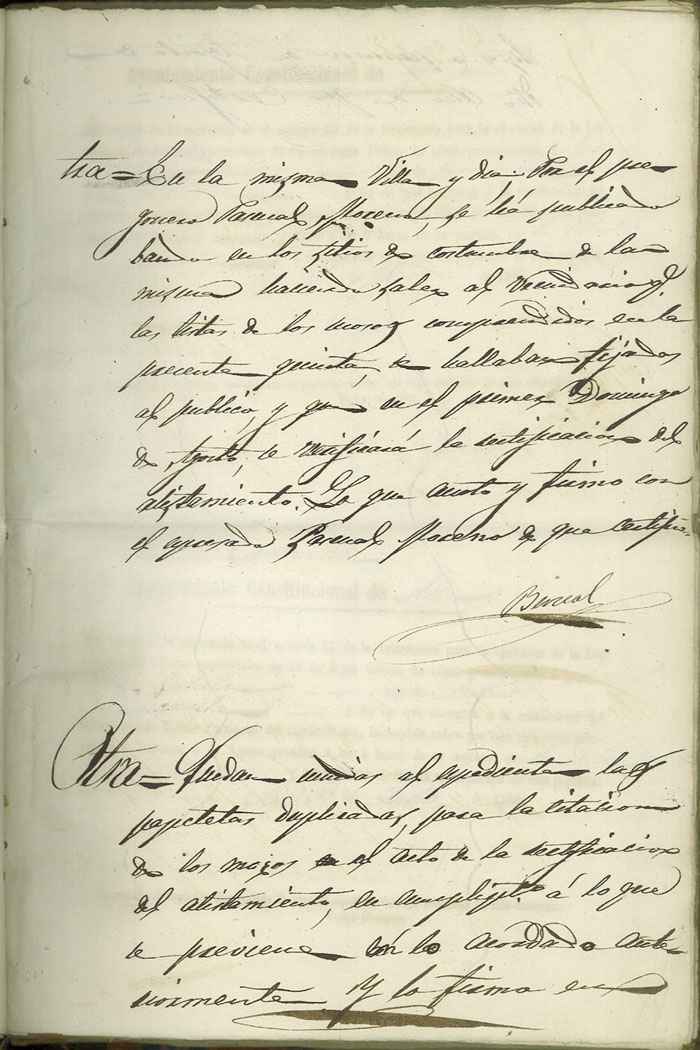 tra = En la misma Villa y dia: Por el pre-
gonero Pascual Moreno, se há publicado
bando en los sitios de costumbre de la
misma haciendo saber al Vecindario q.
las listas de los mozos comprendidos en la
precente quinta, se hallaban fijadas
al publico, y que en el primer Domingo
de Agosto, se verificará la rectificacion del
alistamiento. Lo que anoto y firmo con
el epresado Pascual Moreno de que certifico.
Otra = Quedan unidas al epediente las
papeletas duplicadas, para la citacion
de los mozos en el acto de la rectificacion
del alistamiento, en cumplim.to á lo que
se previene en lo acordado ante-
riormente Y lo firmo en